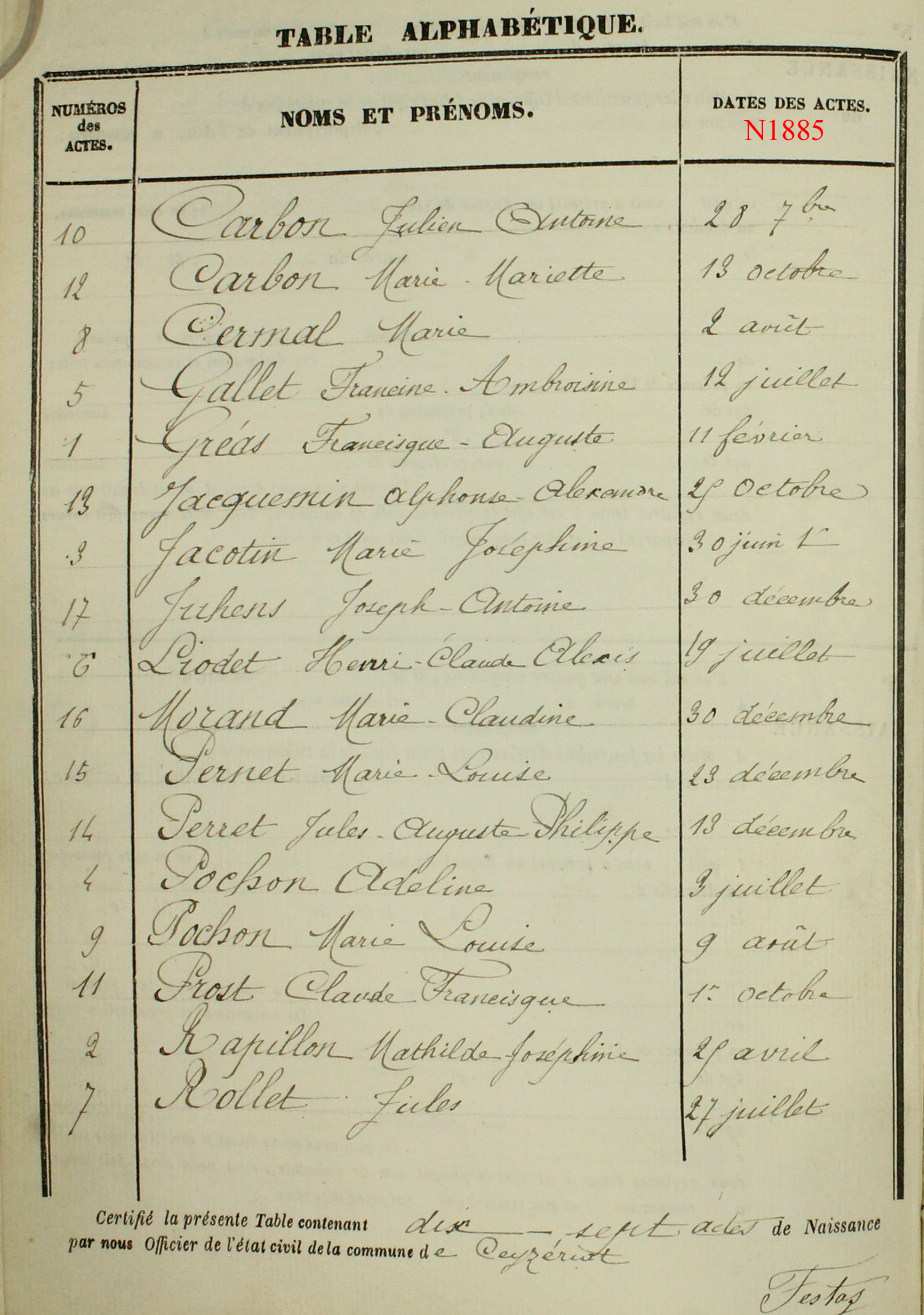 TABLE ALPHABÉTIQUE.
NUMÉROS des ACTES. NOMS ET PRÉNOMS. DATES DES ACTES.
N1885
10 Carbon Julien Antoine 28 7bre
12 Carbon Marie - Mariette 13 octobre
8 Cermal Marie 2 août
5 Gallet Francine - Ambroisine 12 juillet
1 Gréas Francisque - Auguste 11 février
13 Jacquemin Alphonse - Alexandre 25 Octobre
3 Jacotin Marie Joséphine 30 juin
17 Juhens Joseph - Antoine 30 décembre
6 Liodet Henri - Claude Alexis 19 juillet
16 Morand Marie - Claudine 30 décembre
15 Pernet Marie - Louise 23 décembre
14 Perret Jules - Auguste Philippe 13 décembre
4 Pochon Adeline 3 juillet
9 Pochon Marie Louise 9 août
11 Prost Claude Francisque 1er octobre
2 Rapillon Mathilde Joséphine 25 avril
7 Rollet Jules 27 juillet
Certifié la présente Table contenant dix - sept actes de Naissance
par nous Officier de l'état civil de la commune de Ceyzériat